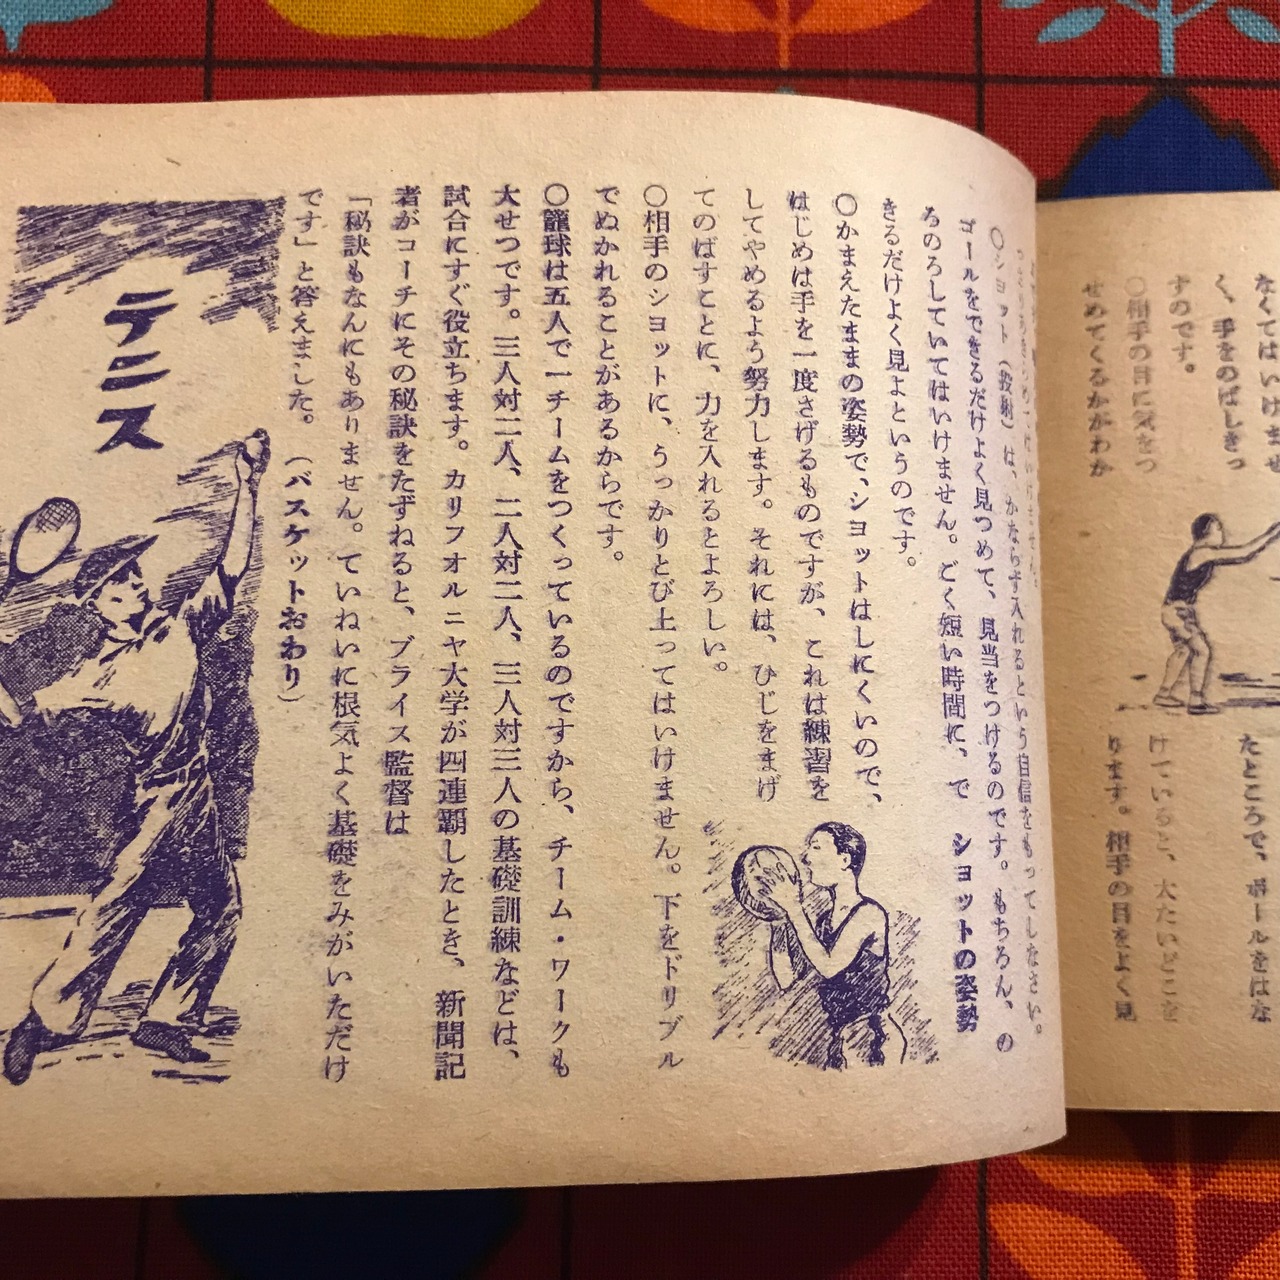 なくてはいけませ
く、手をのばしきっ
すのです。
○相手の目に気をつ
せめてくるかがわか
たところで、ボールをはな
けていると、大たいどこを
ります。相手の目をよく見
○ショット（投射）は、かならず入れるという自信をもってしなさい。
ゴールをできるだけよく見つめて、見当をつけるのです。もちろん、の
ろのろしていてはいけません。ごく短い時間に、で
きるだけよく見よというのです。
ショットの姿勢
○かまえたままの姿勢で、ショットはしにくいので、
はじめは手を一度さげるものですが、これは練習を
してやめるよう努力します。それには、ひじをまげ
てのばすことに、力を入れるとよろしい。
○相手のショットに、うっかりとび上ってはいけません。下をドリブル
でぬかれることがあるからです。
○籠球は五人で一チームをつくっているのですから、チーム・ワークも
大せつです。三人対二人、二人対二人、三人対三人の基礎訓練などは、
試合にすぐ役立ちます。カリフオルニヤ大学が四連覇したとき、新聞記
者がコーチにその秘訣をたずねると、ブライス監督は
「秘訣もなんにもありません。ていねいに根気よく基礎をみがいただけ
です」と答えました。（バスケットおわり）
テニス